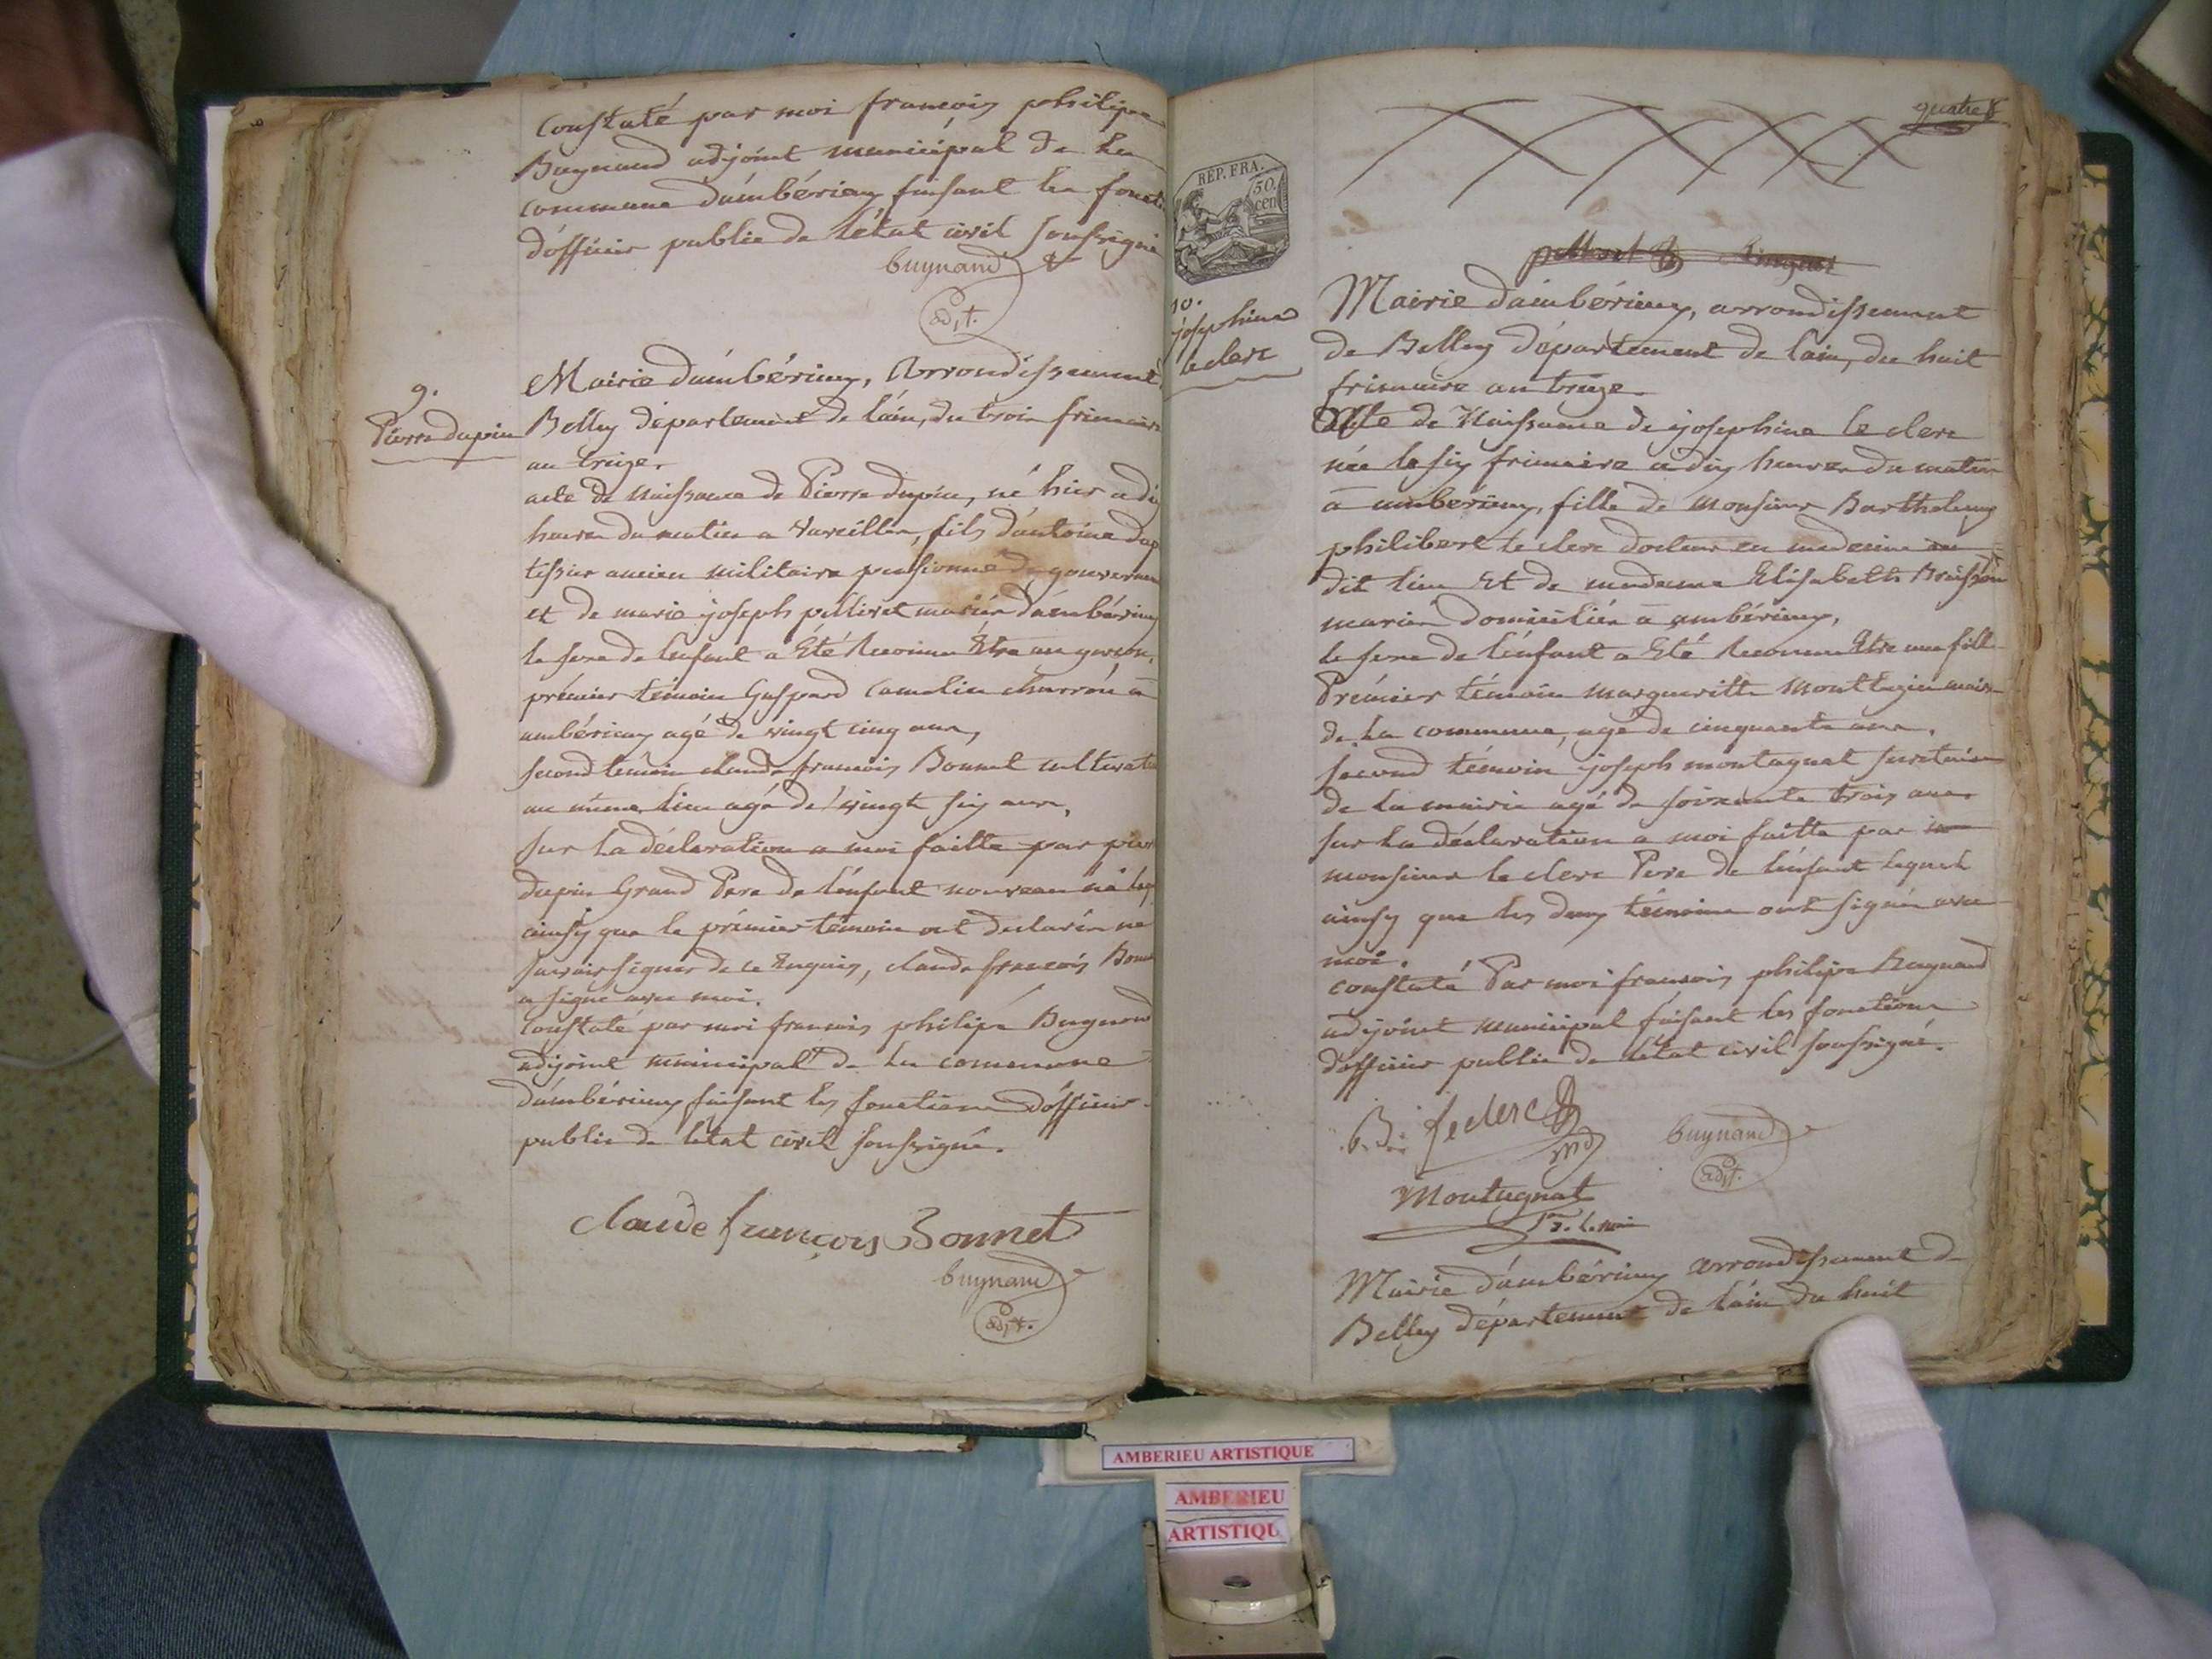 Constaté par moi françois philipe
Buynand adjoint municipal de la
commune d'ambérieux faisant les foncti
d'officier public de l'état civil soussigné
buynand
adjt.
9.
Pierre dupin
Mairie d'ambérieux, arrondissement
Belley département de l'ain, du trois frimaire
an treize.
acte de naissance de Pierre dupin, né hier a dix
heures du matin a Vareilles, fils d'antoine dup
tissier ancien militaire pensionné du gouvernem
et de marie joseph pelliset mariés d'ambérieux
le sexe de l'enfant a Eté Reconnu Etre un garson.
prémier témoin Gaspard Camelin charron a
ambérieux agé de vingt cinq ans,
second témoin claude francois Bonnet cultivate
au même lieu agé de vingt six ans,
sur la déclaration a moi faitte par pier
dupin Grand Pere de l'enfant nouveau né leq
ainsy que le prémier témoin ont declarés ne
savoir signer de ce Enquis, claude francois Bonn
a signé avec moi.
Constaté par moi francois philipe Buynand
adjoint municipal de la commune
d'ambérieux faisant les fonctions d'officier
public de l'état civil soussigné.
claude françois Bonnet
buynand
adjt.
quatre
REP. FRA.
50.
cen
10.
josephine
le clerc
Mairie d'ambérieux, arrondissement
de Belley département de l'ain, du huit
frimaire an treize.
Acte de Naissance de josephine le clerc
née le six frimaire a dix heures du matin
a ambérieux, fille de monsieur Barthelemy
philibert le clerc docteur en medecine au
dit lieu Et de madame Elisabeth Braisson
mariés domiciliés a ambérieux,
le sexe de l'enfant a Eté Reconnu Etre une fille
Prémier témoin margueritte maire
de la commune, agé de cinquante ans.
second témoin joseph montagnat secretaire
de la mairie agé de soixante trois ans
sur la déclaration a moi faitte par
monsieur le clerc Pere de l'enfant lequel
ainsy que les deux témoins ont signés avec
moi.
constaté Par moi francois philipe Buynand
adjoint municipal faisant les fonctions
d'officier public de l'état civil soussigné.
leclerc
md
buynand
adjt.
Montagnat
Mairie d'ambérieux arrondissement de
Belley département de l'ain du huit
AMBERIEU ARTISTIQUE
AMBERIEU
ARTISTIQU